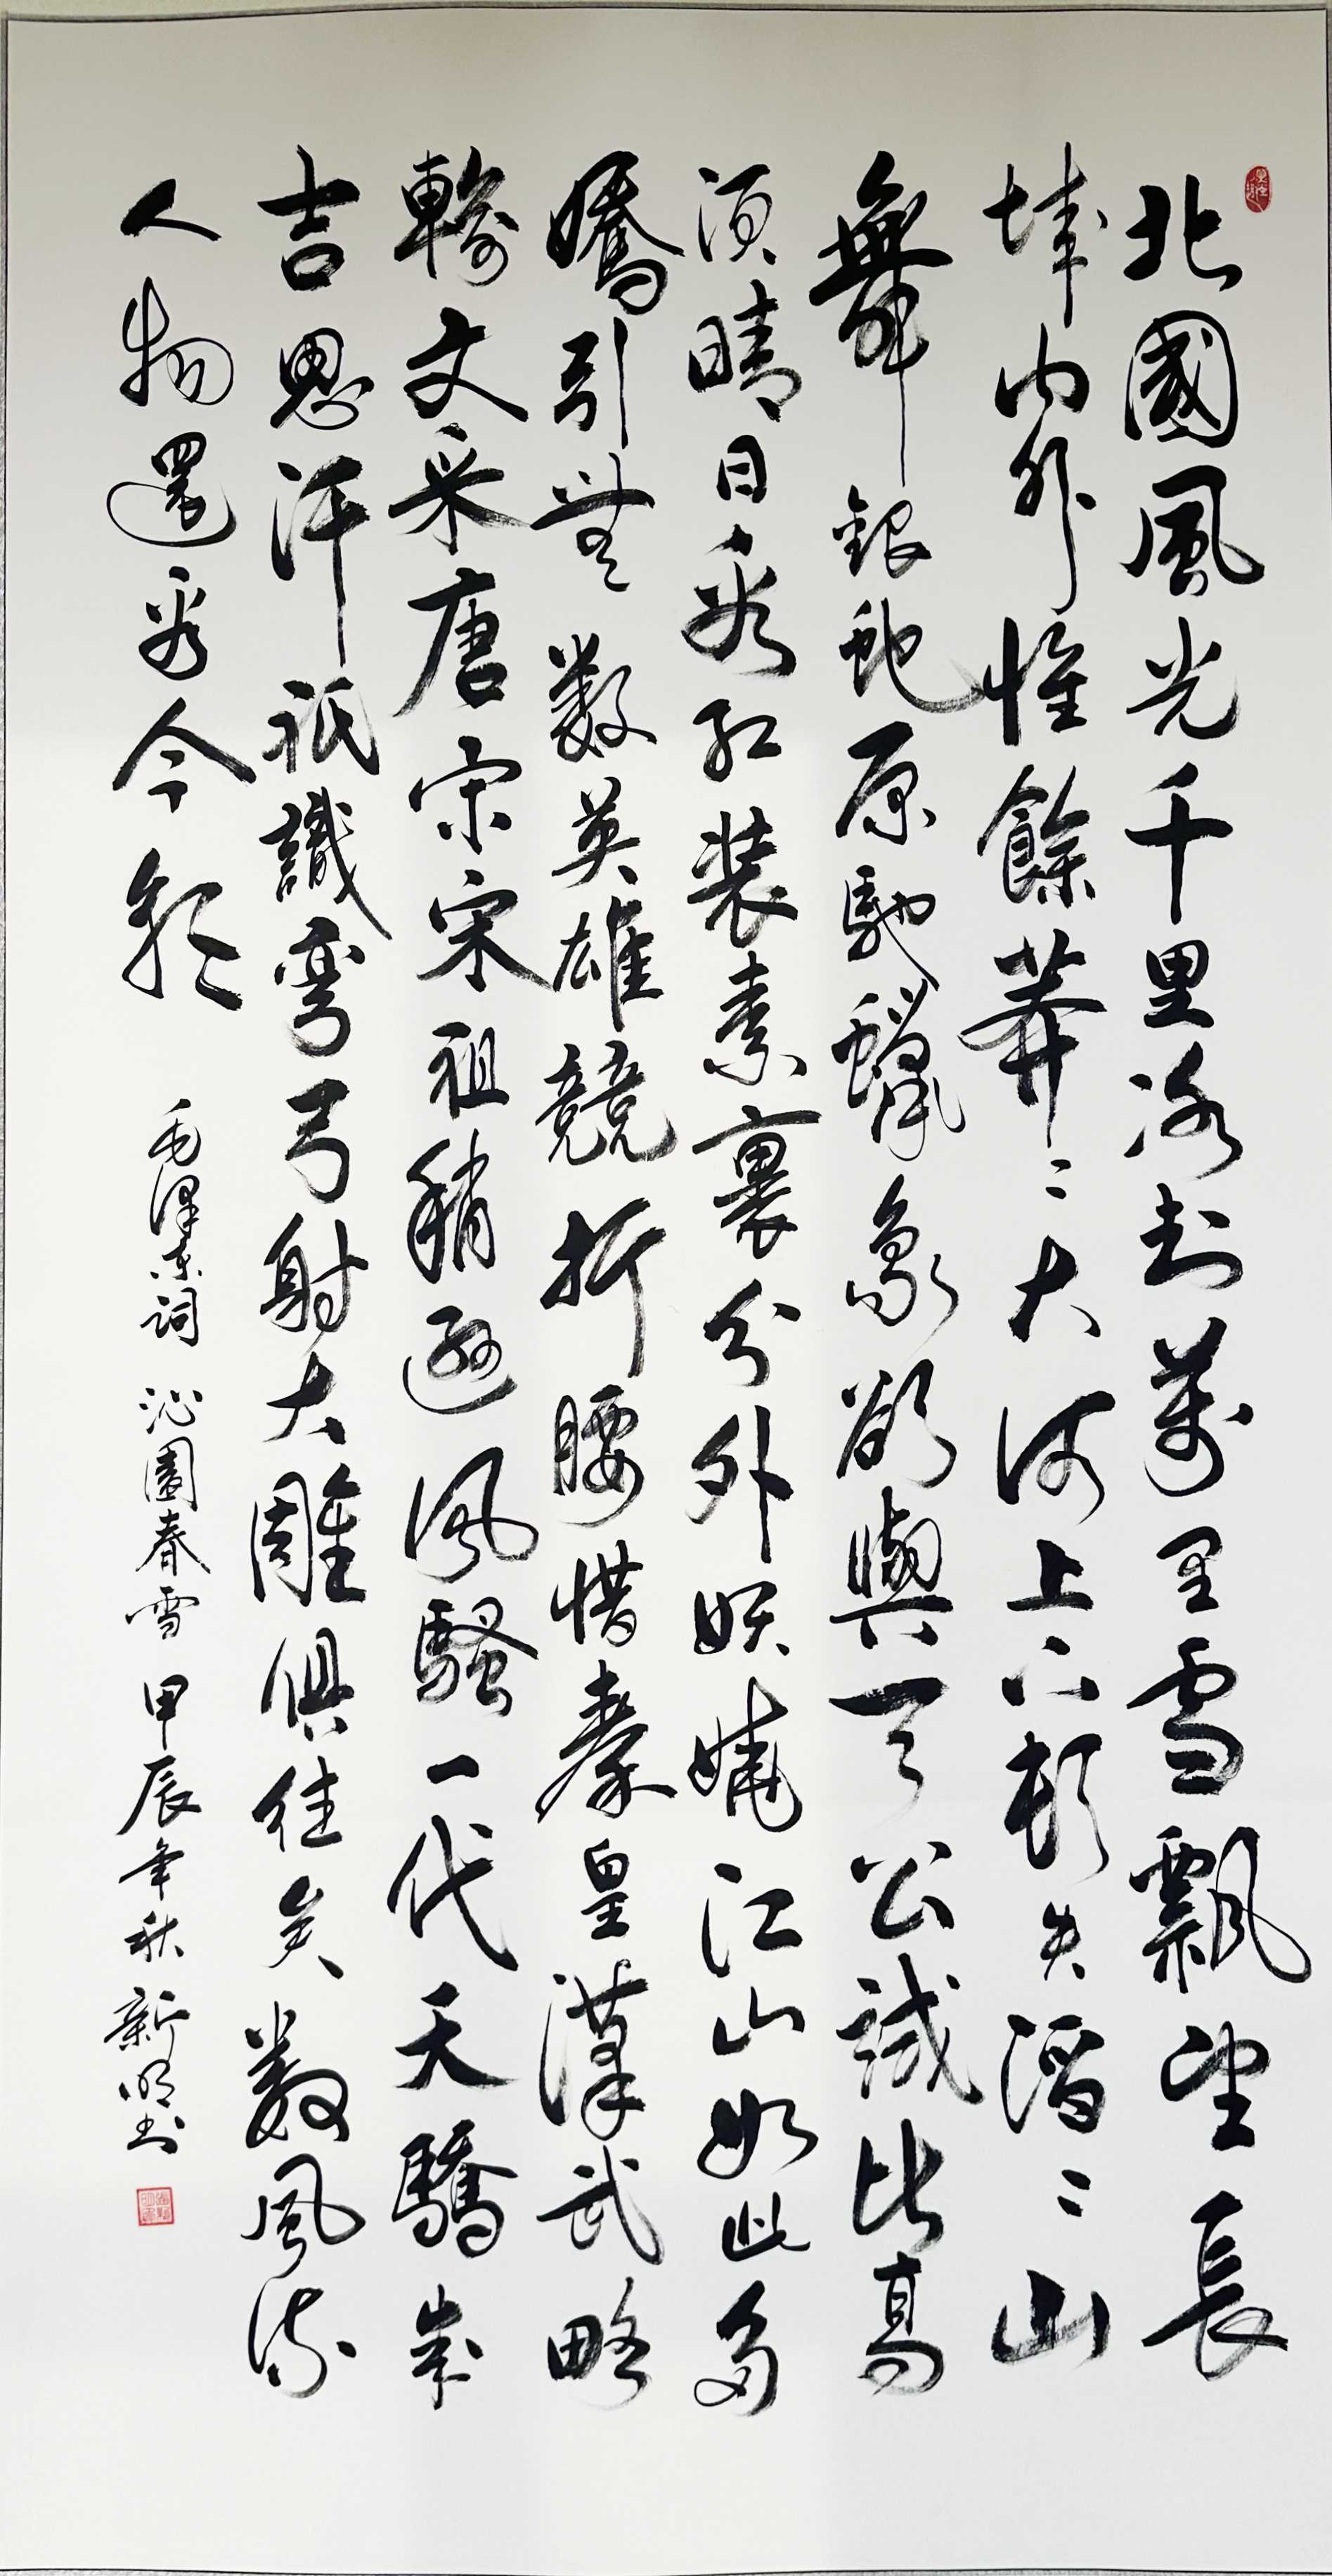 北國風光千里冰封萬里雪飄望長
城內外惟餘莽〻大河上下頓失滔〻山
舞銀蛇原馳蠟象欲與天公試比高
須晴日看紅裝素裹分外妖嬈江山如此多
嬌引無數英雄競折腰惜秦皇漢武略
輸文采唐宗宋祖稍遜風騷一代天驕成
吉思汗祇識彎弓射大雕俱往矣數風流
人物還看今朝 毛澤東詞 沁園春雪 甲辰年秋 新明書